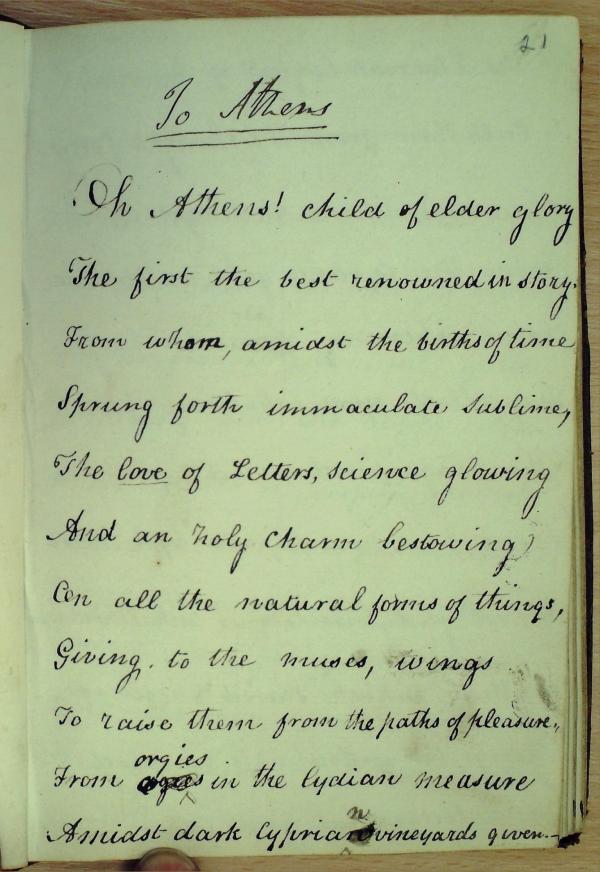 21
To Athens
Oh Athens! child of elder glory
The first the best renowned in story.
From whom, amidst the births of time
Sprung forth immaculate sublime,
The love of Letters, science glowing
And an holy charm bestowing
On all the natural forms of things,
Giving to the muses, wings
To raise them from the paths of pleasure,
orgies
From in the Lydian measure
Amidst dark Cyprian vineyards given.—